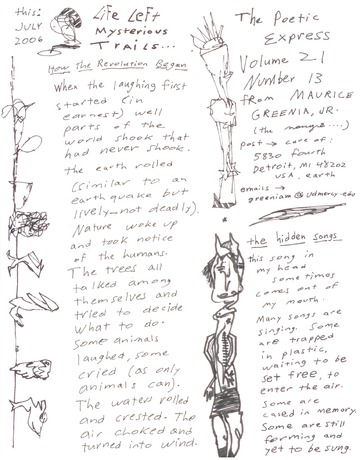 this:
JULY
2006
Life Left
Mysterious
Trails...
How The Revolution Began
When the laughing first
started (in
earnest) well
parts of the
world shook that
had never shook.
the earth rolled
(similar to an
earthquake but
lively-not deadly).
Nature woke up
and took notice
of the humans.
The trees all
talked among
themselves and
tried to decide
what to do.
Some animals
laughed, some
cried (as only
animals can).
The waters rolled
and crested. The
air choked and
turned into wind.
The Poetic
Express
Volume 21
Number 13
from MAURICE
GREENIA, JR.
post → care of:
5830 fourth
Detroit, MI 48202
USA, earth
emails →
greeniam@udmercy.edu
the hidden songs
this song in
my head
some times
comes out of
my mouth.
Many songs are
singing. Some
are trapped
in plastic,
waiting to be
set free, to
enter the air.
Some are
cased in memory.
Some are still
forming and
yet to be sung.